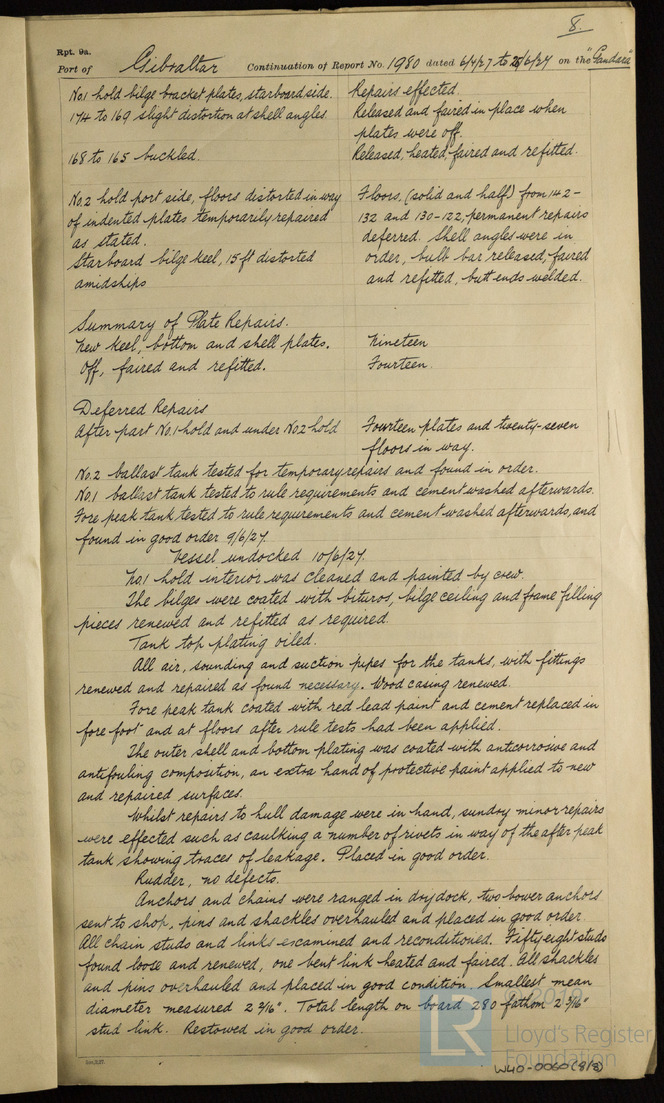 8.
Rpt. 9a.
Port of Gibraltar Continuation of Report No. 1980 dated 6/4/27 to 25/6/27 on the "Gandara"
No.1 hold bilge bracket plates, starboard side. Repairs effected
174 to 169 slight distortion at shell angles Released and faired in place when
plates were off.
168 to 165 buckled. Released, heated, faired and refitted.
No.2 hold port side, floors distorted in way Floors, (solid and half) from 142-
of indented plates temporarily repaired 132 and 130-122, permanent repairs
as stated. deferred. Shell angles were in
Starboard bilge keel, 15 ft distorted order, bulb bar released, faired
amidships and refitted, butt ends welded.
Summary of Plate Repairs.
New keel, bottom and shell plates. Nineteen
Off, faired and refitted. Fourteen.
Deferred Repairs
After part No.1 hold and under No.2 hold Fourteen plates and twenty-seven
floors in way.
No.2 ballast tank tested for temporary repairs and found in order.
No.1 ballast tank tested to rule requirements and cement washed afterwards.
Fore peak tank tested to rule requirements and cement washed afterwards, and
found in good order 9/6/27.
Vessel undocked 10/6/27.
No.1 hold interior was cleaned and painted by crew.
The bilges were coated with bituros, bilge ceiling and frame filling
pieces renewed and refitted as required.
Tank top plating oiled.
All air, sounding and suction pipes for the tanks, with fittings
renewed and repaired as found necessary. Wood casing renewed.
Fore peak tank coated with red lead paint and cement replaced in
fore foot and at floors after rule tests had been applied.
The outer shell and bottom plating was coated with anticorrosive and
antifouling composition, an extra hand of protective paint applied to new
and repaired surfaces.
Whilst repairs to hull damage were in hand, sundry minor repairs
were effected such as caulking a number of rivets in way of the after peak
tank showing traces of leakage. Placed in good order.
Rudder, no defects.
Anchors and chains were ranged in drydock, two bower anchors
sent to shop, pins and shackles overhauled and placed in good order.
All chain studs and links examined and reconditioned. Fifty eight studs
found loose and renewed, one bent link heated and faired. All shackles
and pins overhauled and placed in good condition. Smallest mean
diameter measured 2 2/16". Total length on board 280 fathom 2 3/16"
stud link. Restowed in good order.
LR
Lloyd's Register
Foundation
W40-0060 (8/8)